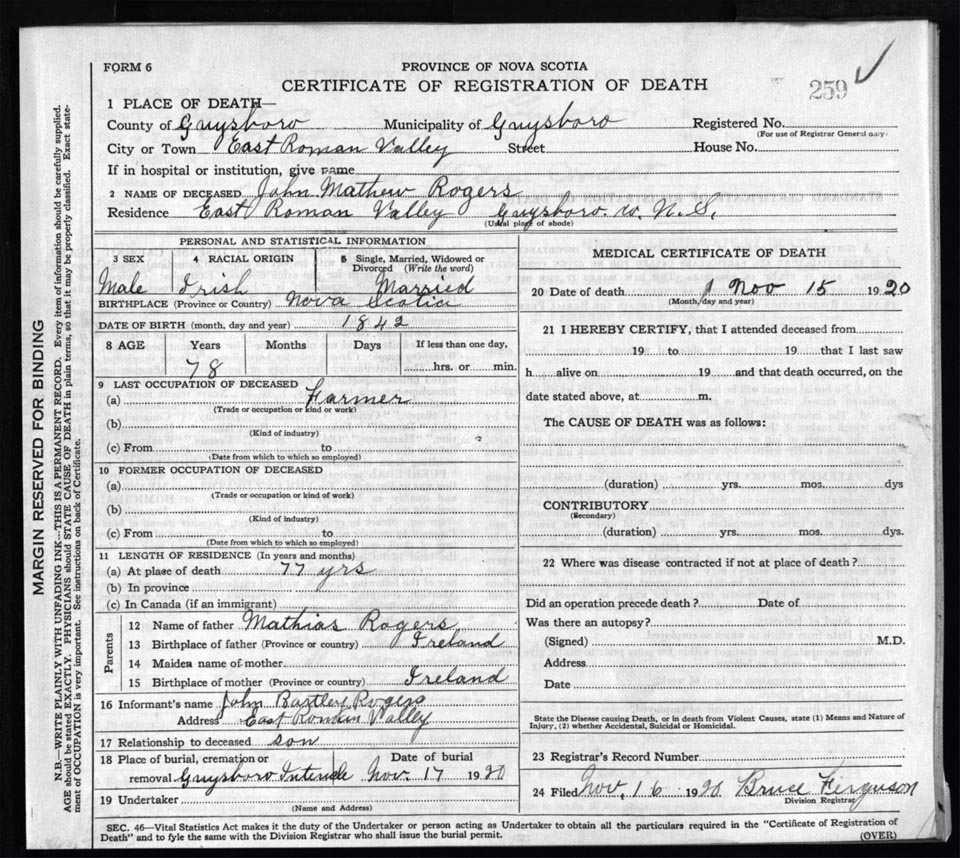 FORM 6
PROVINCE OF NOVA SCOTIA
CERTIFICATE OF REGISTRATION OF DEATH
259
1 PLACE OF DEATH—
County of Guysboro Municipality of Guysboro Registered No.
(For use of Registrar General only)
City or Town East Roman Valley Street House No.
If in hospital or institution, give name
2 NAME OF DECEASED John Mathew Rogers
Residence East Roman Valley Guysboro Co. N.S.
(Usual place of abode)
PERSONAL AND STATISTICAL INFORMATION
3 SEX 4 RACIAL ORIGIN 5 Single, Married, Widowed or Divorced (Write the word)
Male Irish Married
BIRTHPLACE (Province or Country) Nova Scotia
DATE OF BIRTH (month, day and year) 1842
8 AGE Years Months Days If less than one day,
78 hrs. or min.
9 LAST OCCUPATION OF DECEASED
(a) Farmer
(Trade or occupation or kind or work)
(b)
(Kind of industry)
(c) From to
(Date from which to which so employed)
10 FORMER OCCUPATION OF DECEASED
(a)
(Trade or occupation or kind of work)
(b)
(Kind of industry)
(c) From to
(Date from which to which so employed)
11 LENGTH OF RESIDENCE (In years and months)
(a) At place of death 77 yrs
(b) In province
(c) In Canada (if an immigrant)
Parents
12 Name of father Mathias Rogers
13 Birthplace of father (Province or country) Ireland
14 Maiden name of mother
15 Birthplace of mother (Province or country) Ireland
16 Informant's name John Bartley Rogers
Address East Roman Valley
17 Relationship to deceased son
18 Place of burial, cremation or Date of burial
removal Guysboro Intervale Nov. 17 1920
19 Undertaker
(Name and Address)
MEDICAL CERTIFICATE OF DEATH
20 Date of death Nov 15 1920
(Month, day and year)
21 I HEREBY CERTIFY, that I attended deceased from
19 to 19 that I last saw
h alive on 19 and that death occurred, on the
date stated above, at m.
The CAUSE OF DEATH was as follows:
(duration) yrs. mos. dys
CONTRIBUTORY
(Secondary)
(duration) yrs. mos. dys.
22 Where was disease contracted if not at place of death?
Did an operation precede death? Date of
Was there an autopsy?
(Signed) M.D.
Address
Date
State the Disease causing Death, or in death from Violent Causes, state (1) Means and Nature of
Injury, (2) whether Accidental, Suicidal or Homicidal.
23 Registrar's Record Number
24 Filed Nov, 16 1920 Bruce Ferguson
Division Registrar
SEC. 46—Vital Statistics Act makes it the duty of the Undertaker or person acting as Undertaker to obtain all the particulars required in the "Certificate of Registration of
Death" and to fyle the same with the Division Registrar who shall issue the burial permit.
(OVER)
MARGIN RESERVED FOR BINDING
N.B.—WRITE PLAINLY WITH UNFADING INK—THIS IS A PERMANENT RECORD. Every item of information should be carefully supplied.
AGE should be stated EXACTLY. PHYSICIANS should STATE CAUSE OF DEATH in plain terms, so that it may be properly classified. Exact state-
ment of OCCUPATION is very important. See instructions on back of Certificate.